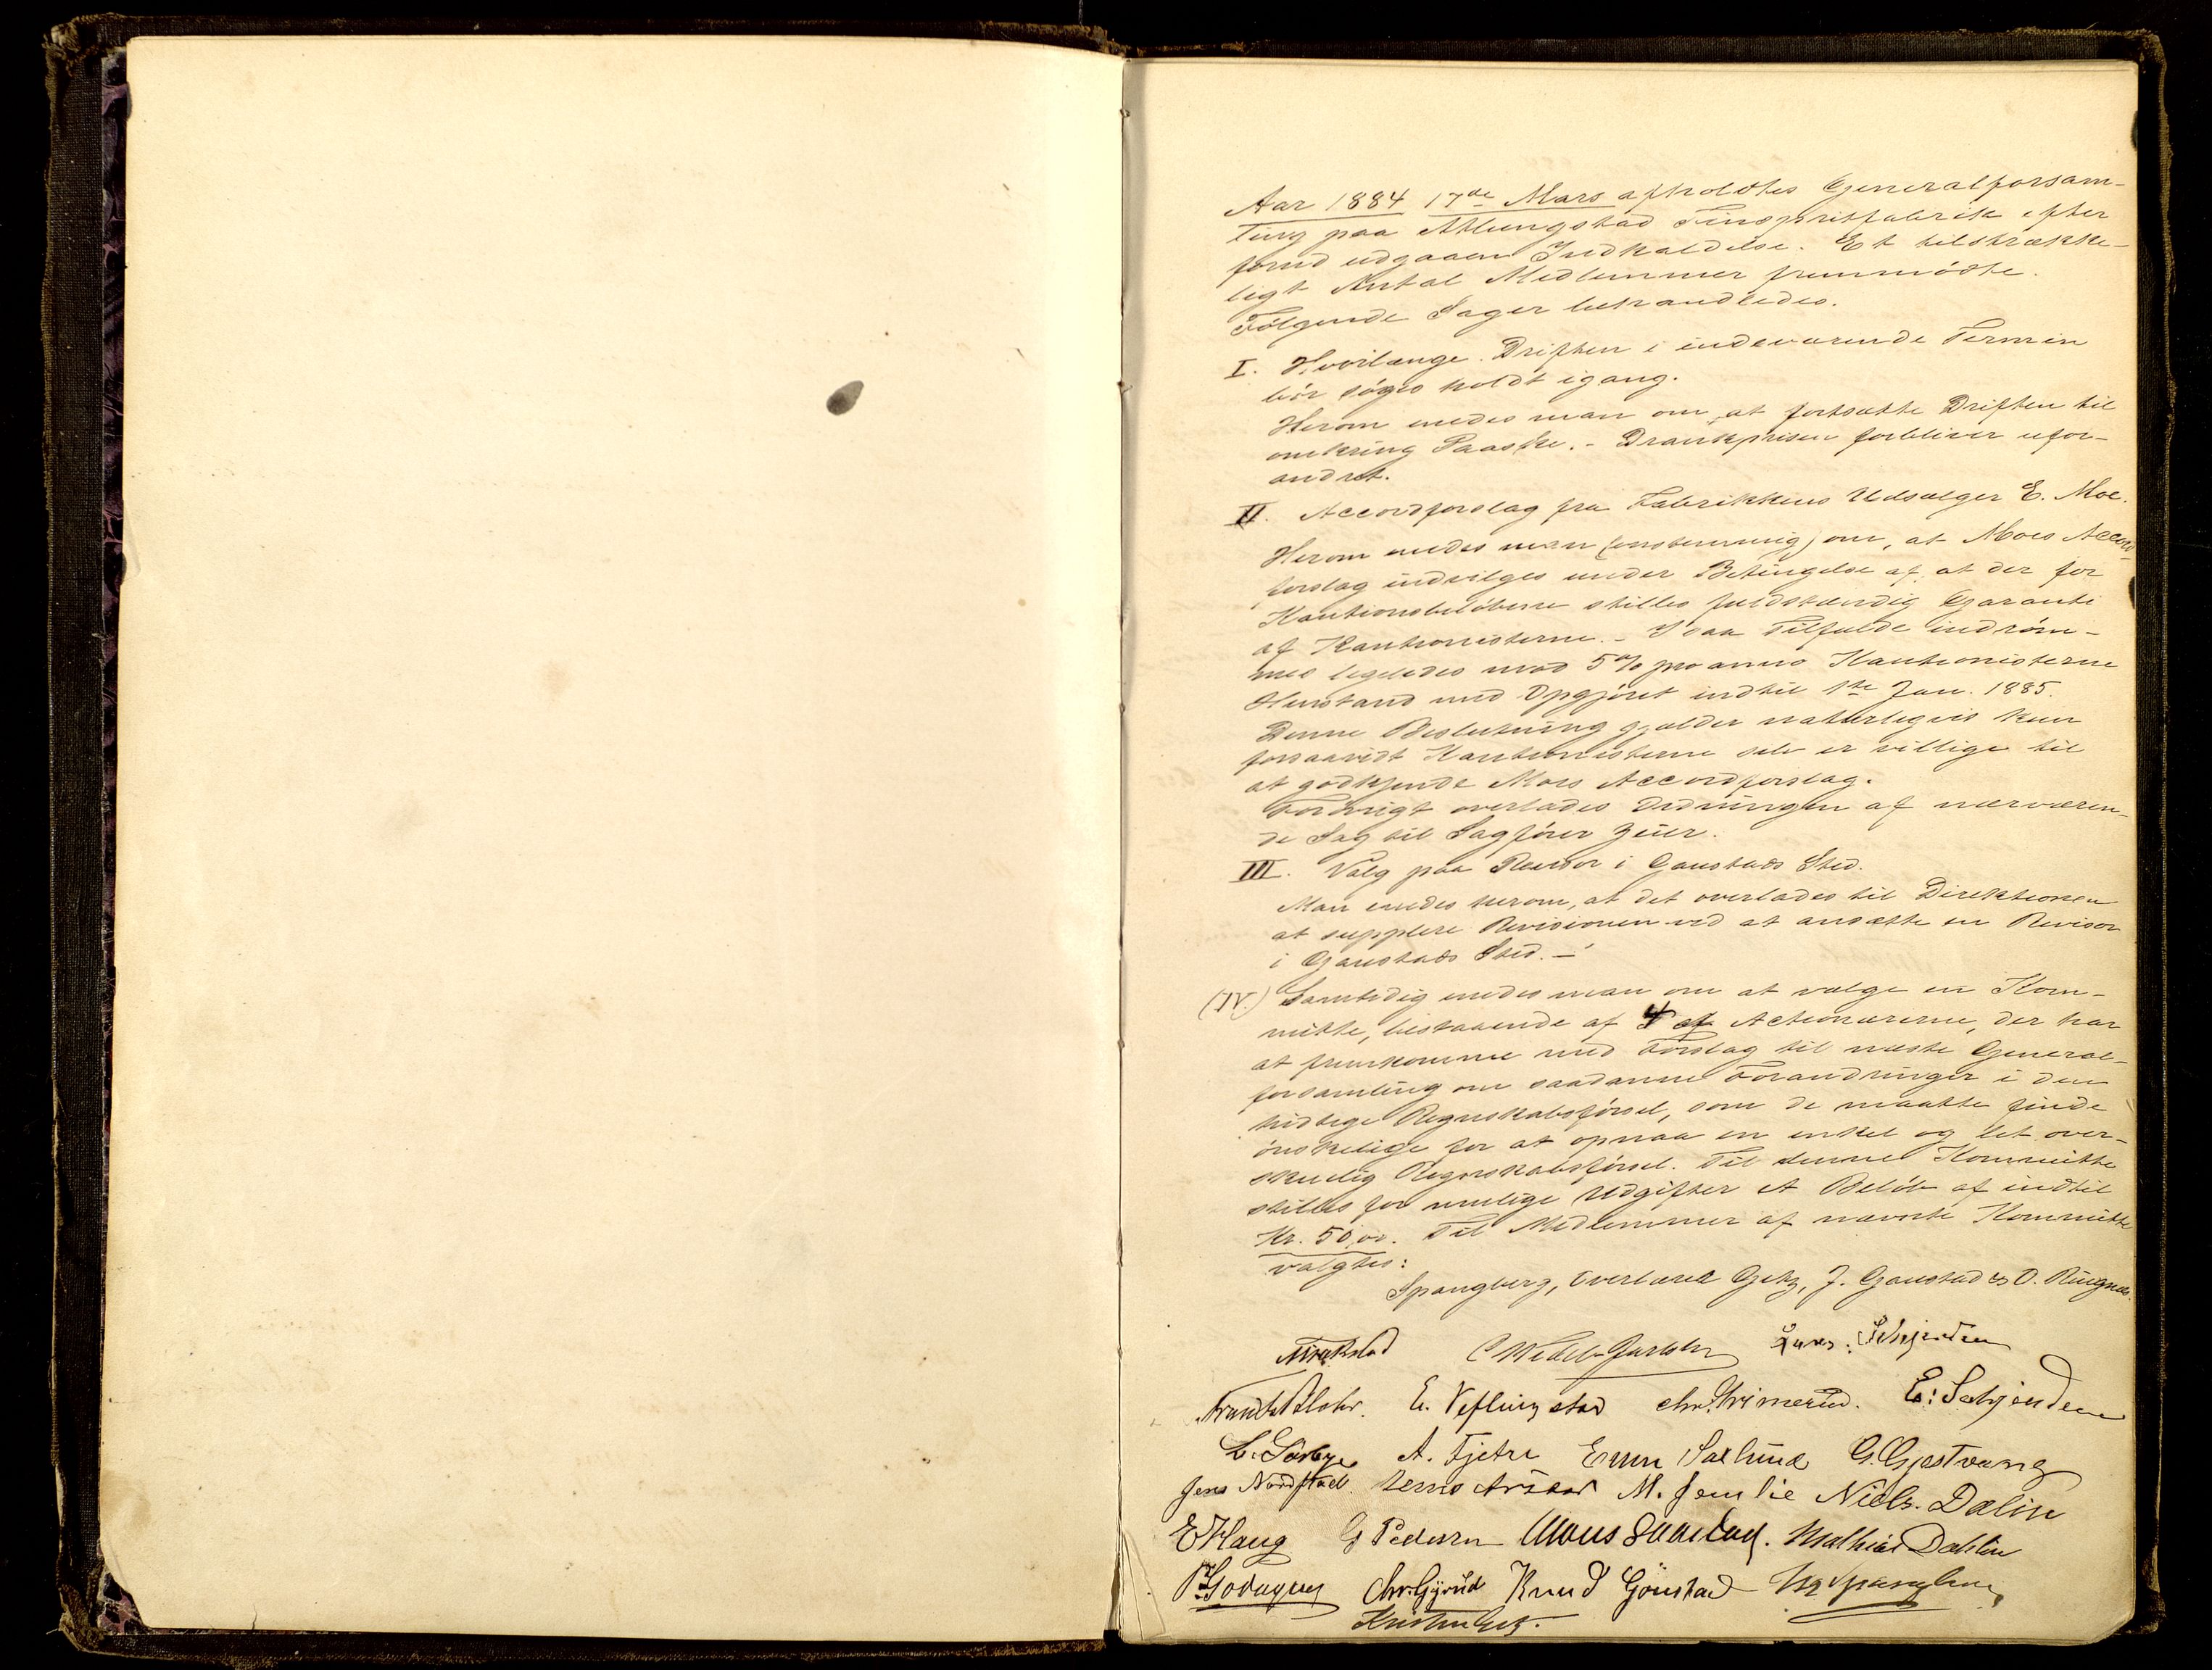 Aar 1884 17de Mars afholdtes Generalforsam-
ling paa Atlungstad Finspritfabrik efter
forud udgaaen Indkaldelse. Et tilstrække-
ligt Antal Medlemmer fremmödte.
Følgende Sager behandledes.
I. Hvorlænge Driften i indeværende Termin
bör söges holdt igang.
Herom enedes man om, at fortsætte Driften til
omkring Paaske. - Drankprisen forbliver ufor-
andret.
II. Accordforslag fra Fabrikkens Udsælger E. Moe.
Herom enedes man (enstemmig) om, at Moes Accord-
forslag indvilges under Betingelse af, at der for
Kautionsbelöbene stilles fuldstændig Garanti
af Kautionisterne. - I saa Tilfælde indröm-
mes ligeledes mod 5% pro anno Kautionisterne
Henstand med Opgjöret indtil 1ste Jan. 1885.
Denne Beslutning gjælder naturligvis kun
forsaavidt Kautionisterne selv er villige til
at godkjende Moes Accordforslag.
Forövrigt overlades Ordningen af nærværen-
de Sag til Sagförer Zeier.
III. Valg paa Revisor i Gaustads Sted.
Man enedes herom, at det overlades til Direktionen
at supplere Revisionen ved at ansætte en Revisor
i Gaustads Sted. -
(IV.) Samtidig enedes man om at vælge en Kom-
mitte, bestaaende af 4 af Actionærerne, der har
at fremkomme med Forslag til næste General-
forsamling om saadanne Forandringer i den
hidtige Regnskabsförsel, som de maatte finde
önskelige for at opnaa en enkel og let over-
skuelig Regnskabsförsel. Til denne Kommitte
stilles for mulige Udgifter et Belöb af indtil
Kr. 50,00. Til Medlemmer af nævnte Kommitte
valgtes:
Spangberg, Overlærer Getz, J. Gaustad & O. Ringnes.
C Wedel-Jarlsberg Lars: Schjerden
E. Veflingstad Chr. Skrimerud. E: Schjerden
C. Sörbye A. Tjetre Even Sælund G. Gjestvang
Jens Nordstad. M. Jemlie Niels. Dælin
E Haug G Pedersen Mathias Dahlin
Chr. Gjörud Knud Gönstad